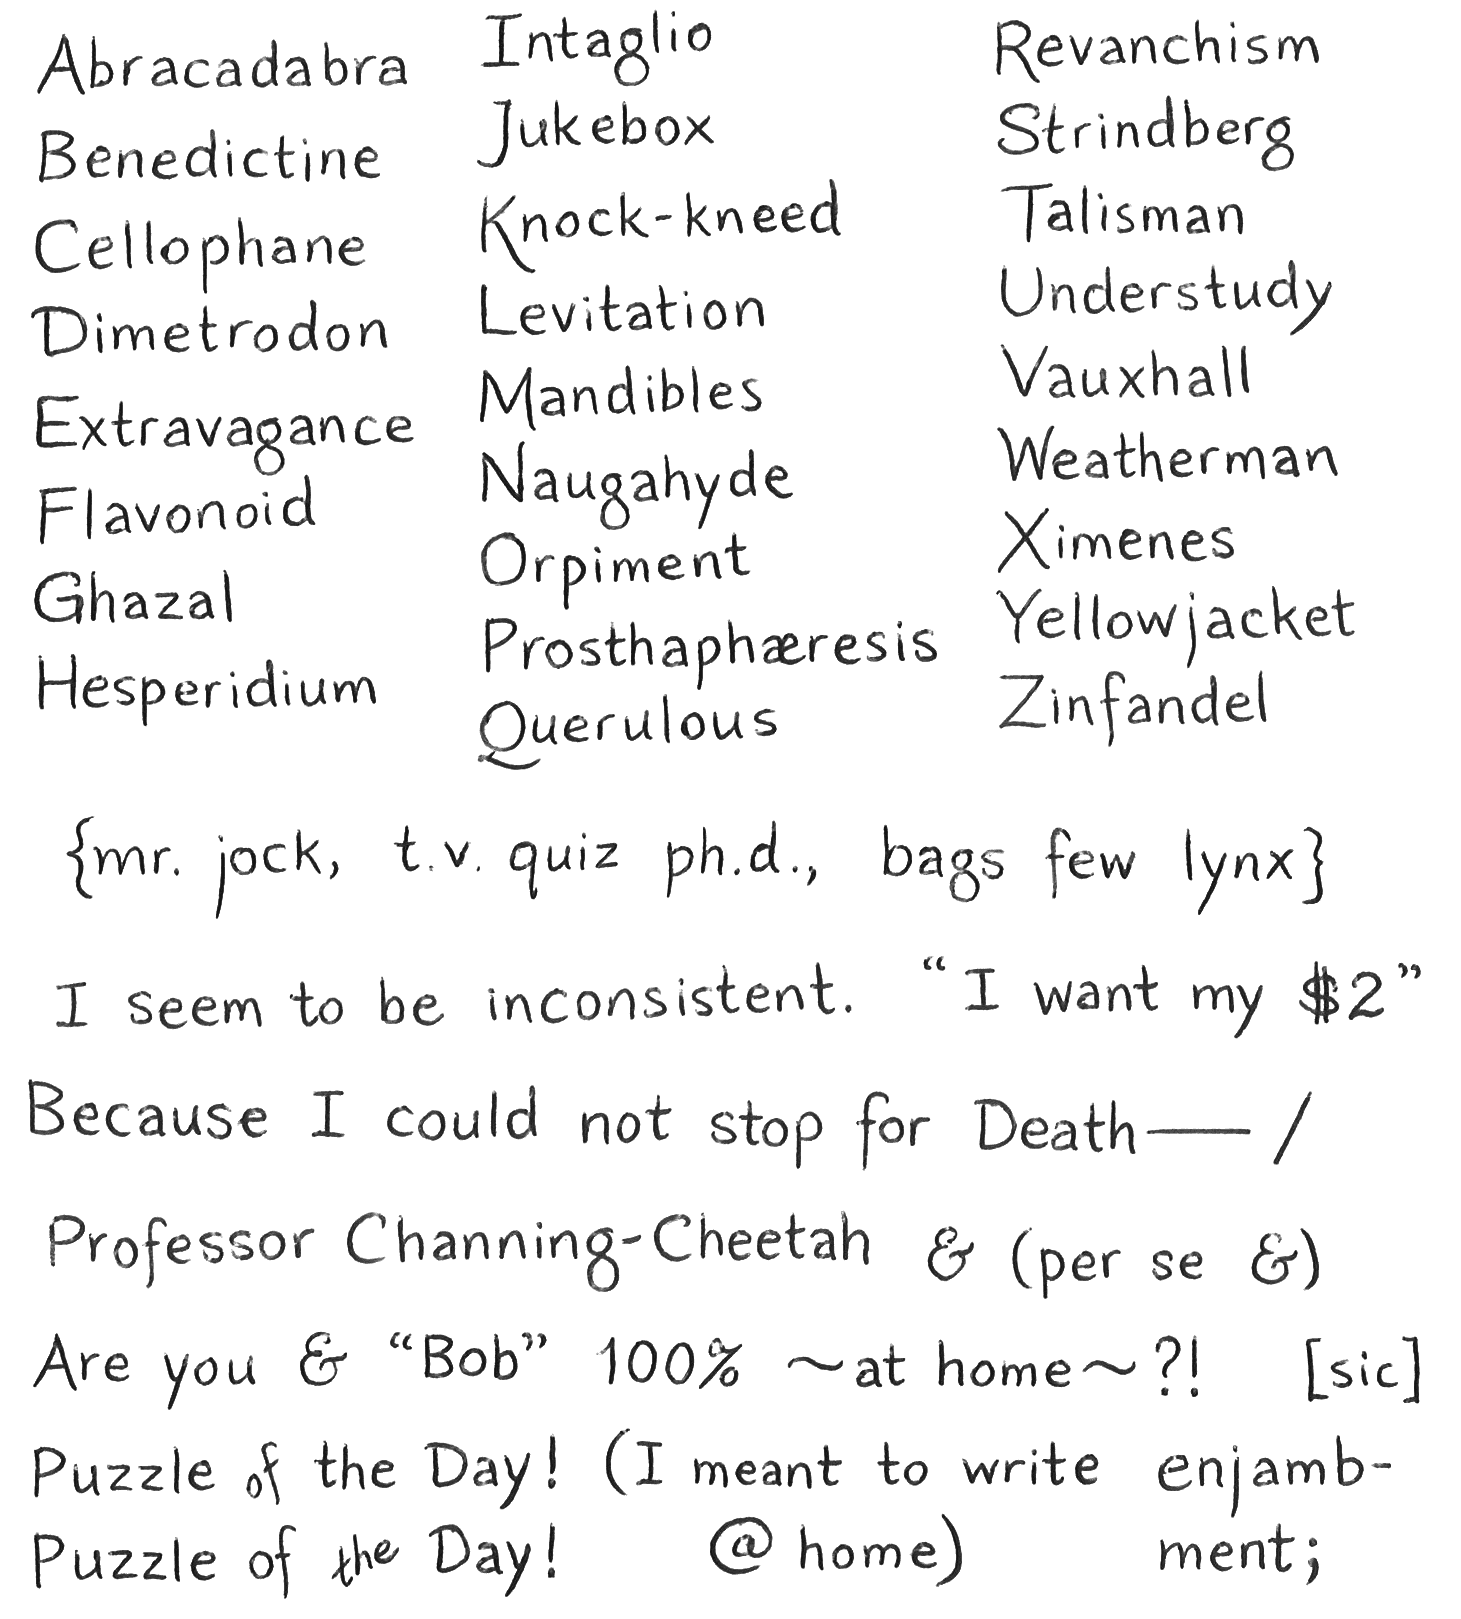 Abracadabra
Benedictine
Cellophane
Dimetrodon
Extravagance
Flavonoid
Ghazal
Hesperidium
Intaglio
Jukebox
Knock-kneed
Levitation
Mandibles
Naugahyde
Orpiment
Prosthaphæresis
Querulous
Revanchism
Strindberg
Talisman
Understudy
Vauxhall
Weatherman
Ximenes
Yellowjacket
Zinfandel
{mr. jock, t.v. quiz ph.d., bags few lynx}
I seem to be inconsistent. “I want my $2”
Because I could not stop for Death— /
Professor Channing-Cheetah & (per se &)
Are you & “Bob” 100% ~at home~?! [sic]
Puzzle of the Day! (I meant to write enjamb-
Puzzle of the Day! @ home) ment;